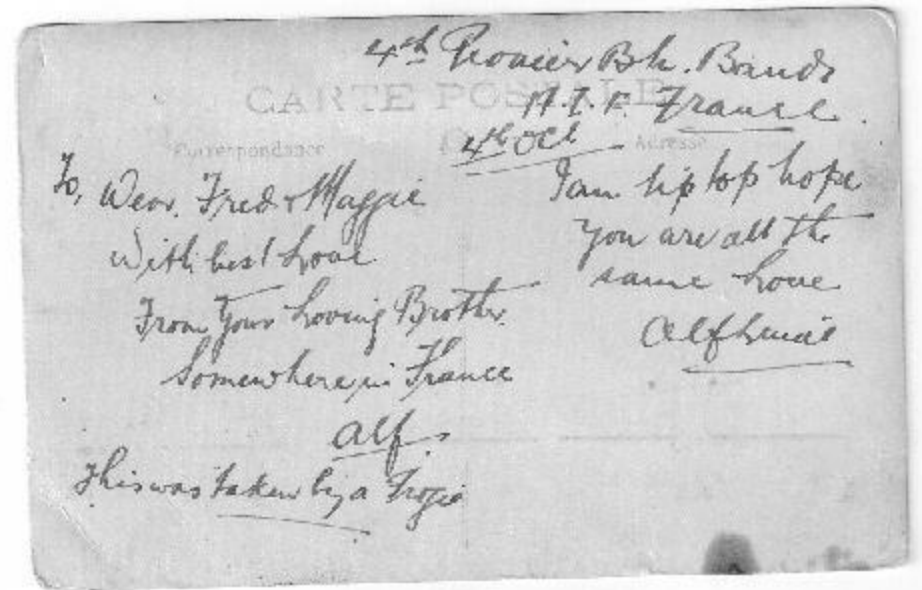 4th Pionier Bn. Band
A.I.F. France.
CARTE POSTALE
4th Oct
Correspondance
Adresse
To, Dear Fred & Maggie
With best Love
From Your Loving Brother
Somewhere in France
Alf.
This was taken by a Frogie
I am tip top hope
You are all the
same Love
Alf